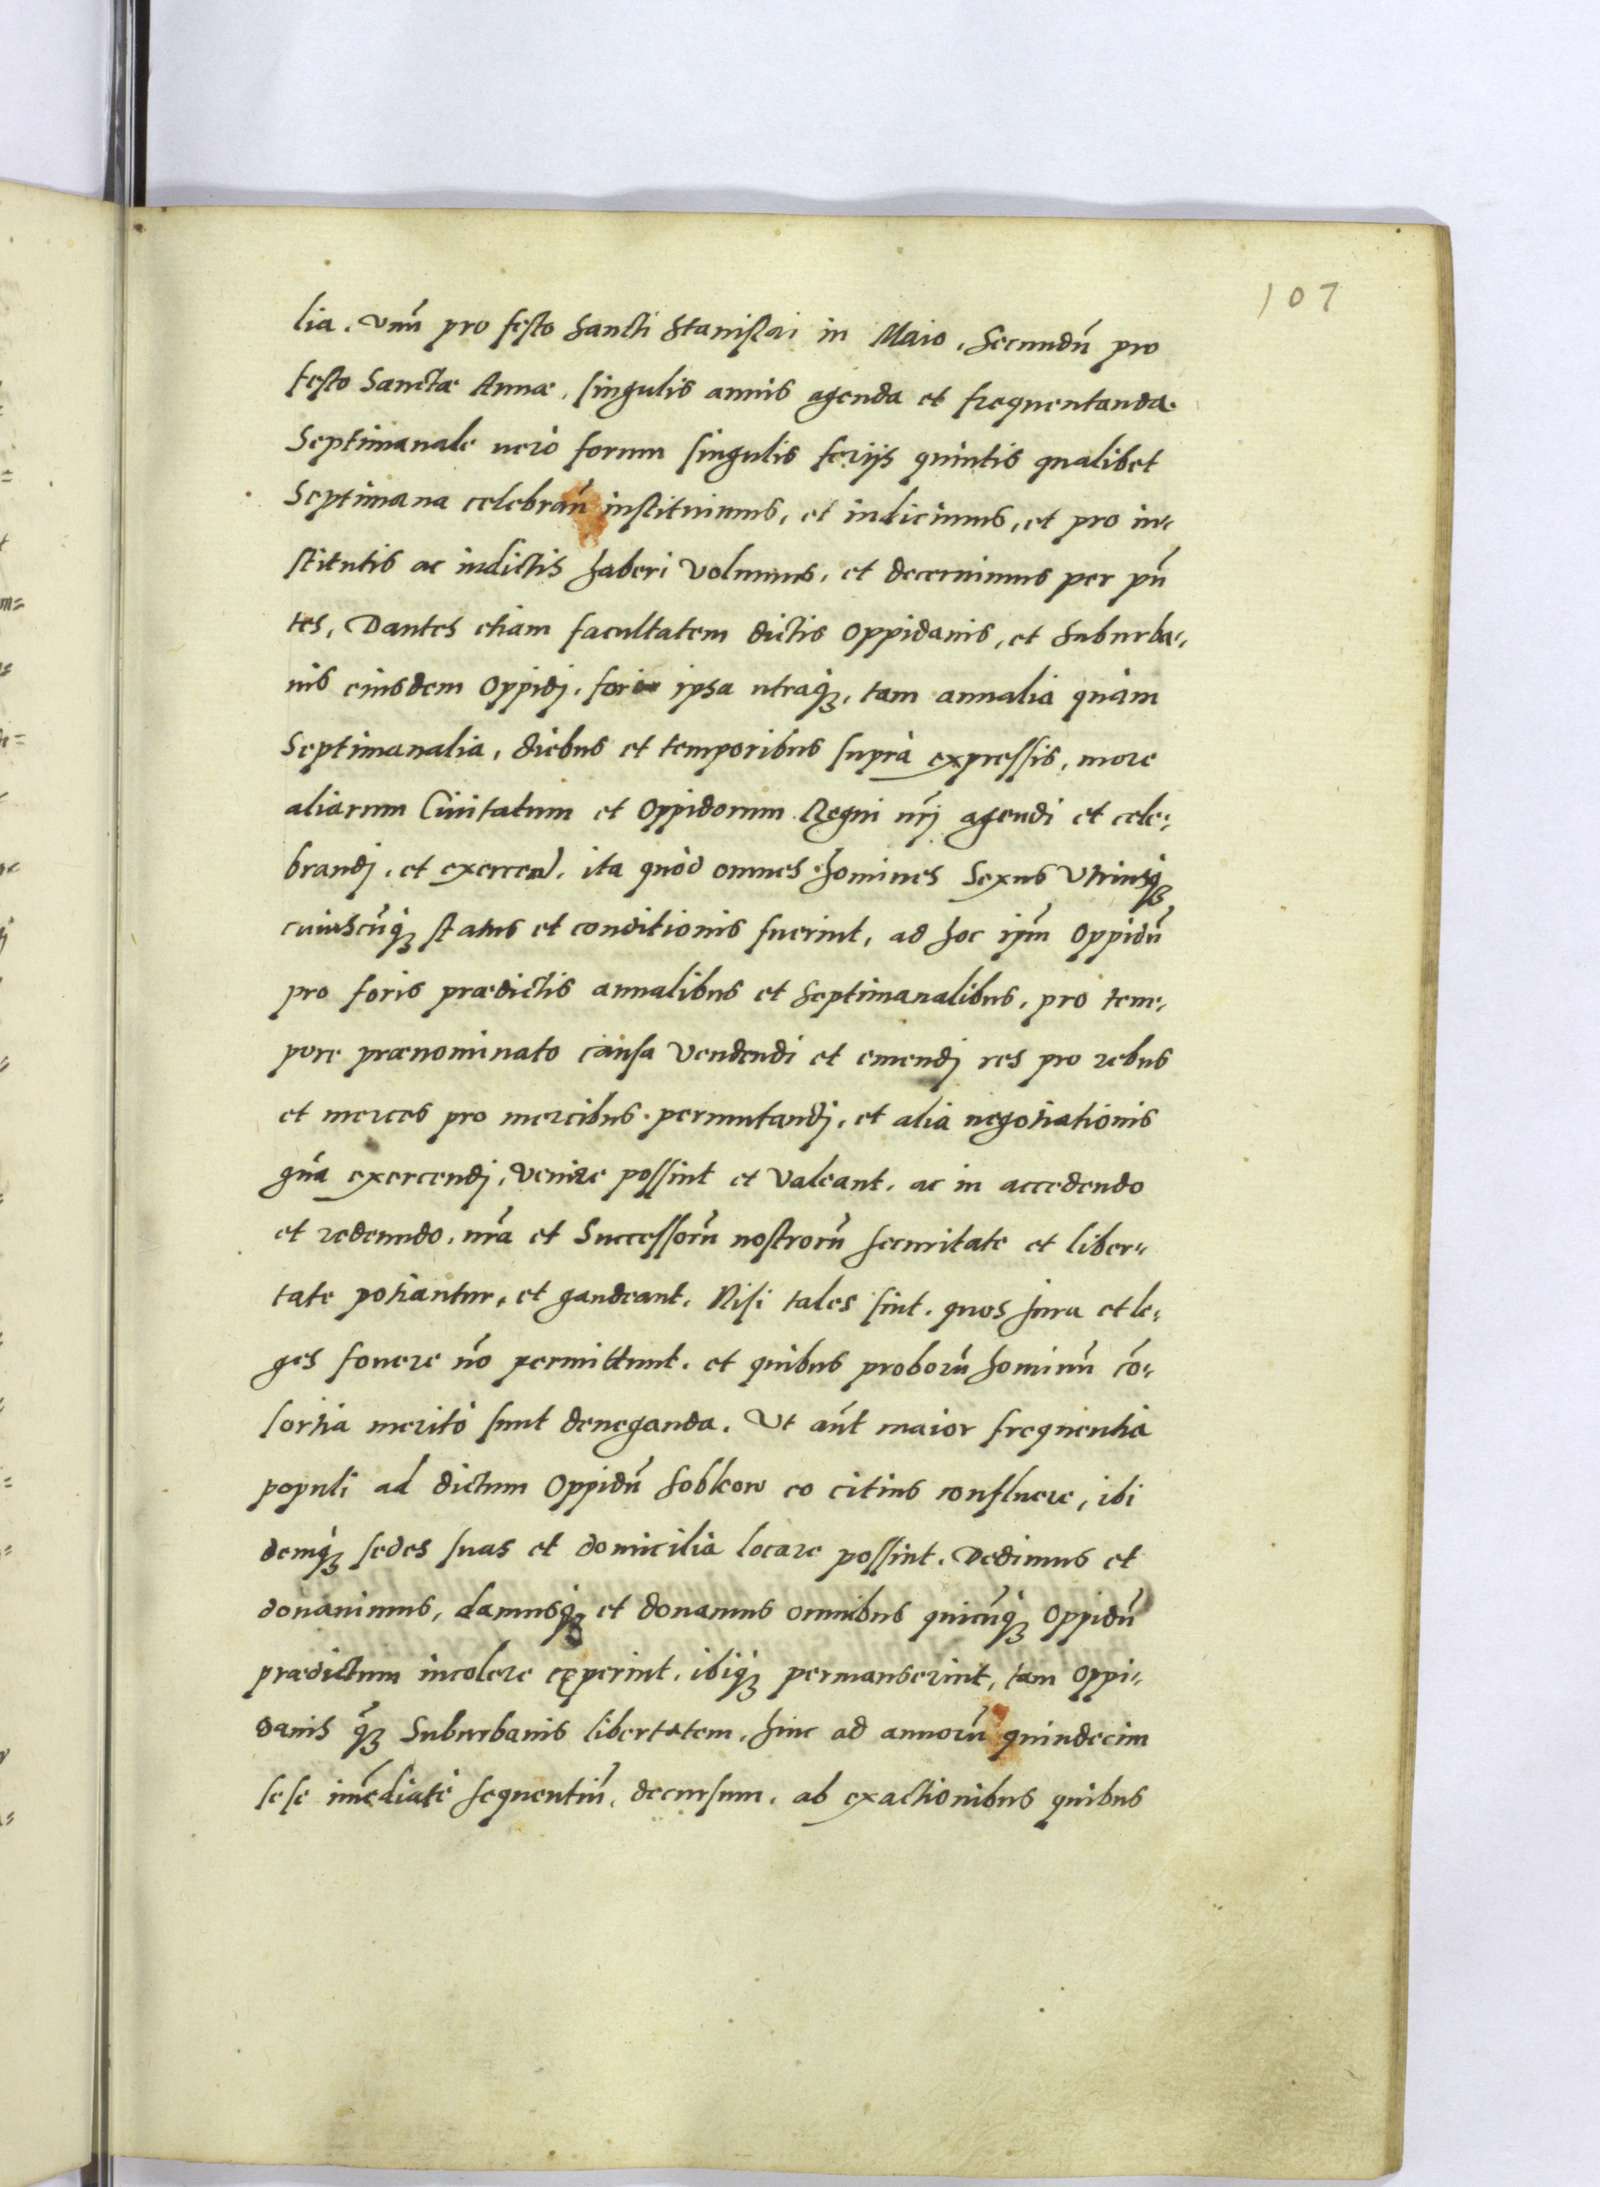 107
lia. Vnũ pro festo Sancti Stanislai in Maio, Secundũ pro
festo Sanctæ Annæ, singulis annis agenda et frequentanda.
Septimanale uerò forum singulis ferijs quintis qualibet
Septimana celebrañ instituimus, et indicimus, et pro in=
stitutis ac indictis haberi volumus, et decernimus per pñ
tes, Dantes etiam facultatem dictis Oppidanis, et Suburba=
nis eiusdem Oppidj, fora ipsa utraq̃, tam annalia quàm
Septimanalia, diebus et temporibus suprà expressis, more
aliarum Ciuitatum et Oppidorum Regni nr̃j agendi et cele=
brandj, et exercend. ita quòd omnes homines Sexus Vtriusq̃
cuiuscũq̃ status et conditionis fuerint, ad hoc ip̃m Oppidũ
pro foris prædictis annalibus et Septimanalibus, pro tem=
pore prænominato causa Vendendi et emendj res pro rebus
et merces pro mercibus permutandj, et alia negotiationis
gña exercendj, Venire possint et Valeant, ac in accedendo
et redeundo, nr̃a et Successorũ nostrorũ securitate et liber=
tate potiantur, et gaudeant. Nisi tales sint, quos Jura et le=
ges fouere nõ permittunt, et quibus proborũ hominũ cõ=
sortia meritò sunt deneganda. Vt aũt maior frequentia
populi ad dictum Oppidũ Sobkow eo citius confluere, ibi
demq̃ sedes suas et domicilia locare possint. Dedimus et
donauimus, damusq̃ et donamus omnibus quicũq̃ Oppidũ
prædictum incolere cęperint, ibiq̃ permanserint, tam Oppi=
danis q̃ Suburbanis libertatem, hinc ad annorũ quindecim
sese im̃ediatè sequentiũ, decursum, ab exactionibus quibus